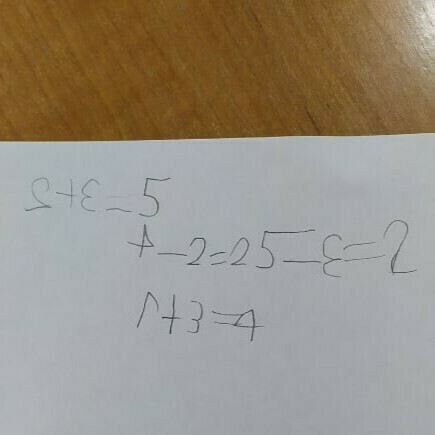 2+3=5
4-2=25-3=2
1+3=4